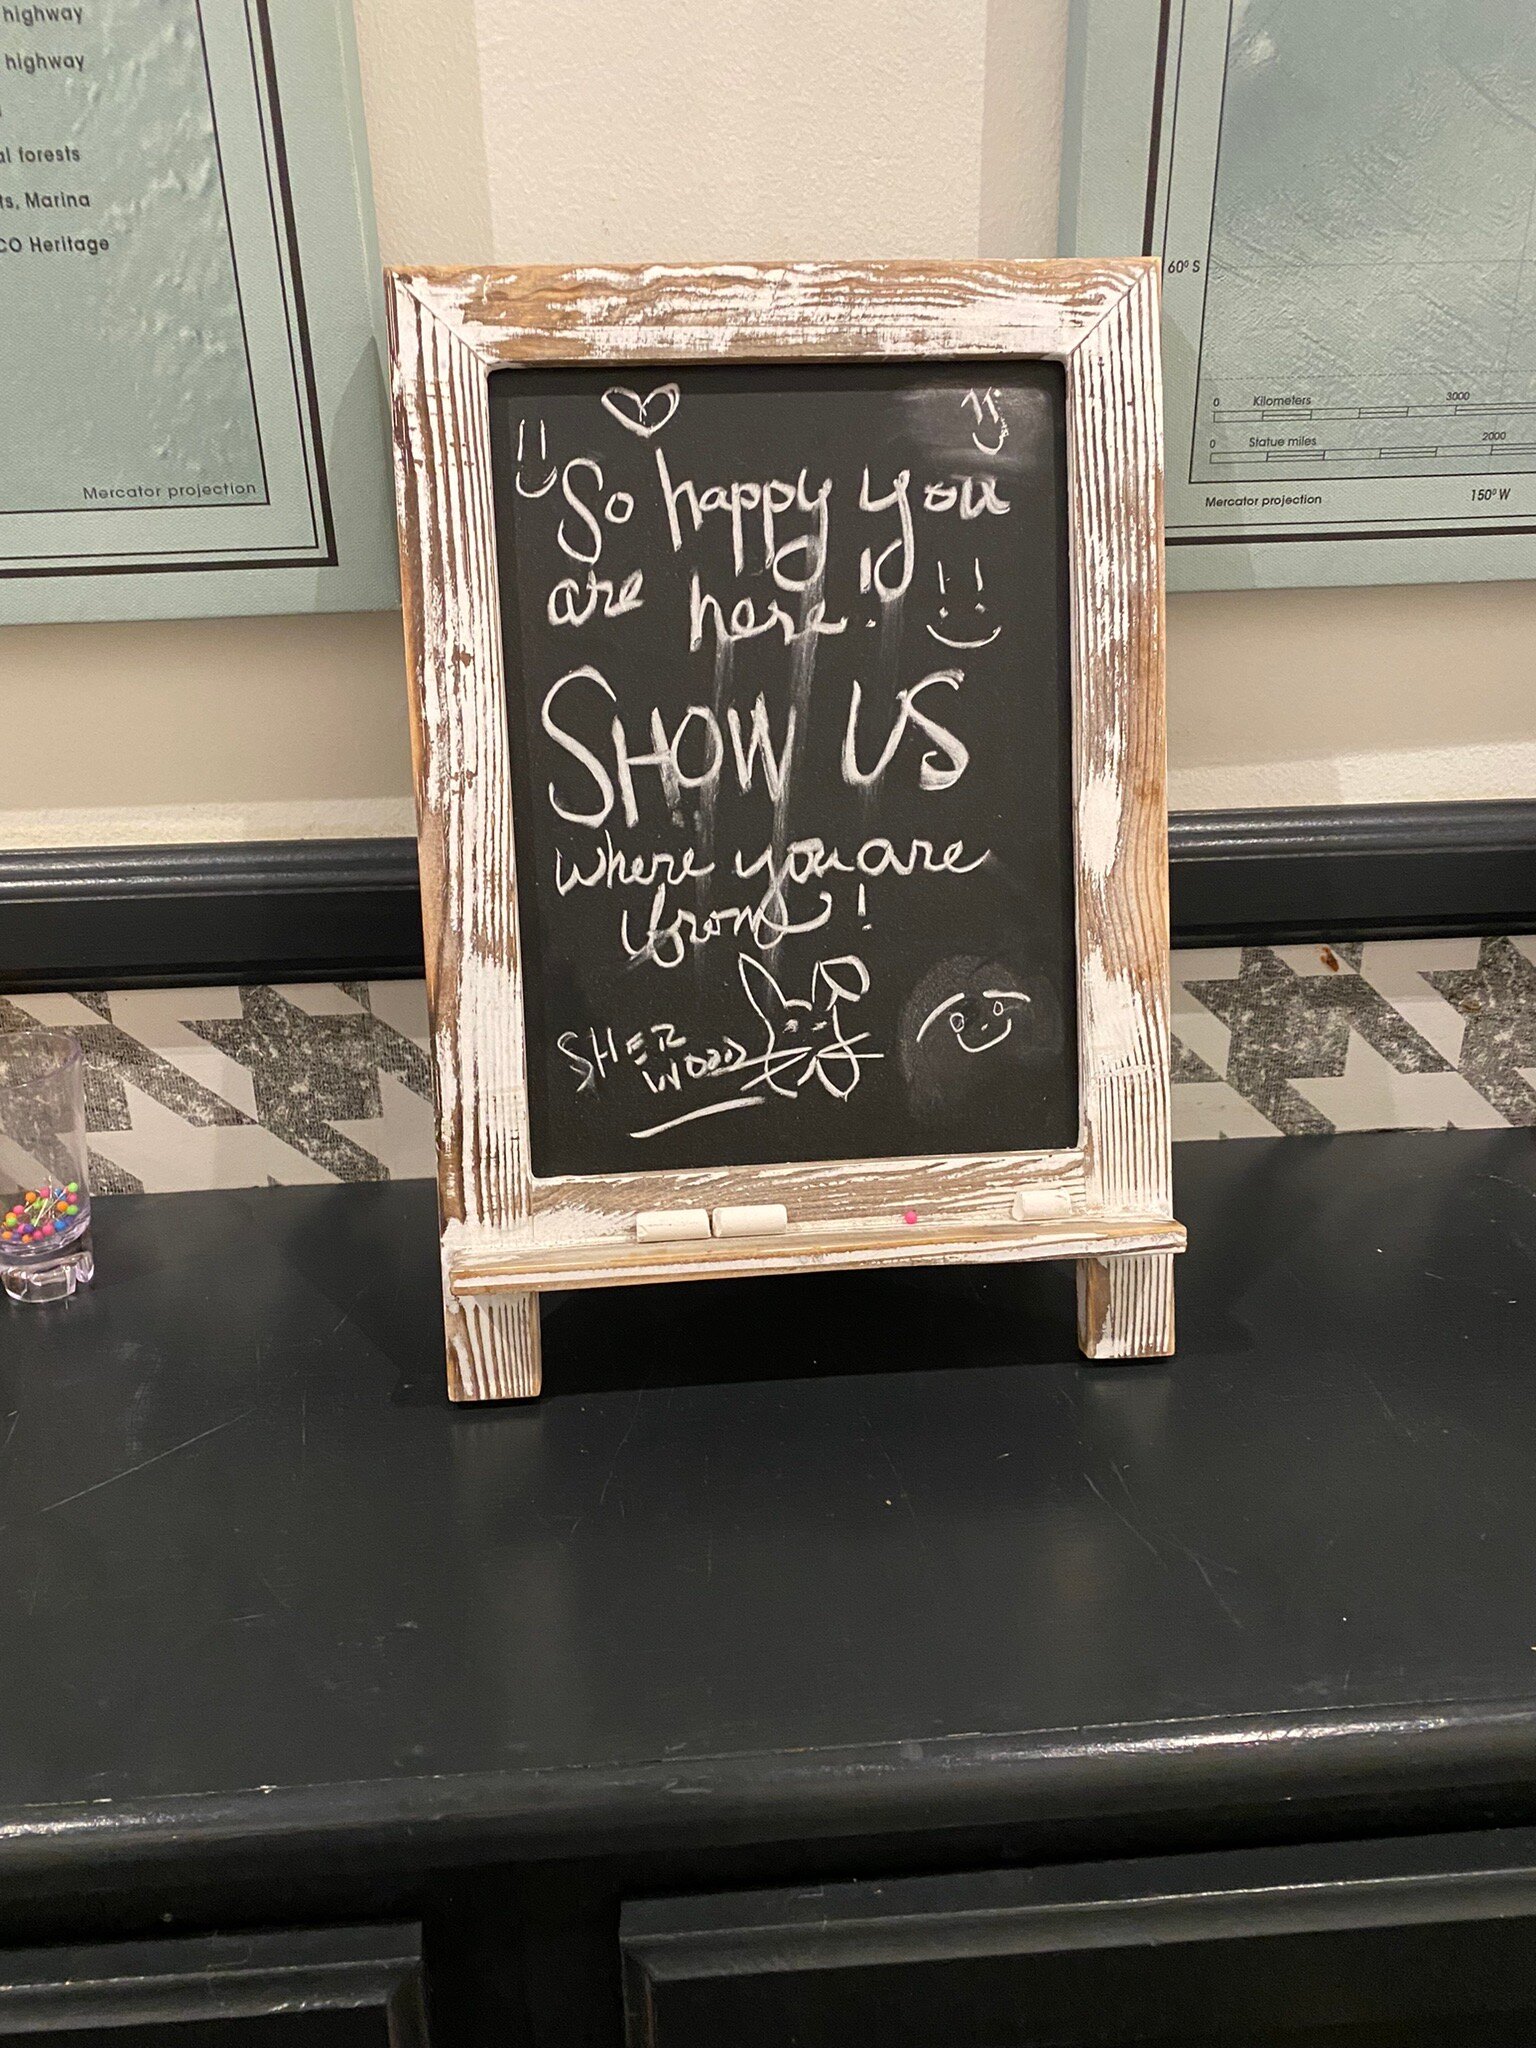 highway
highway
al forests
ts, Marina
CO Heritage
Mercator projection
60° S
0 Kilometers 3000
0 Statue miles 2000
Mercator projection 150° W
So happy you
are here!
SHOW US
where you are
from!
SHER
WOOD